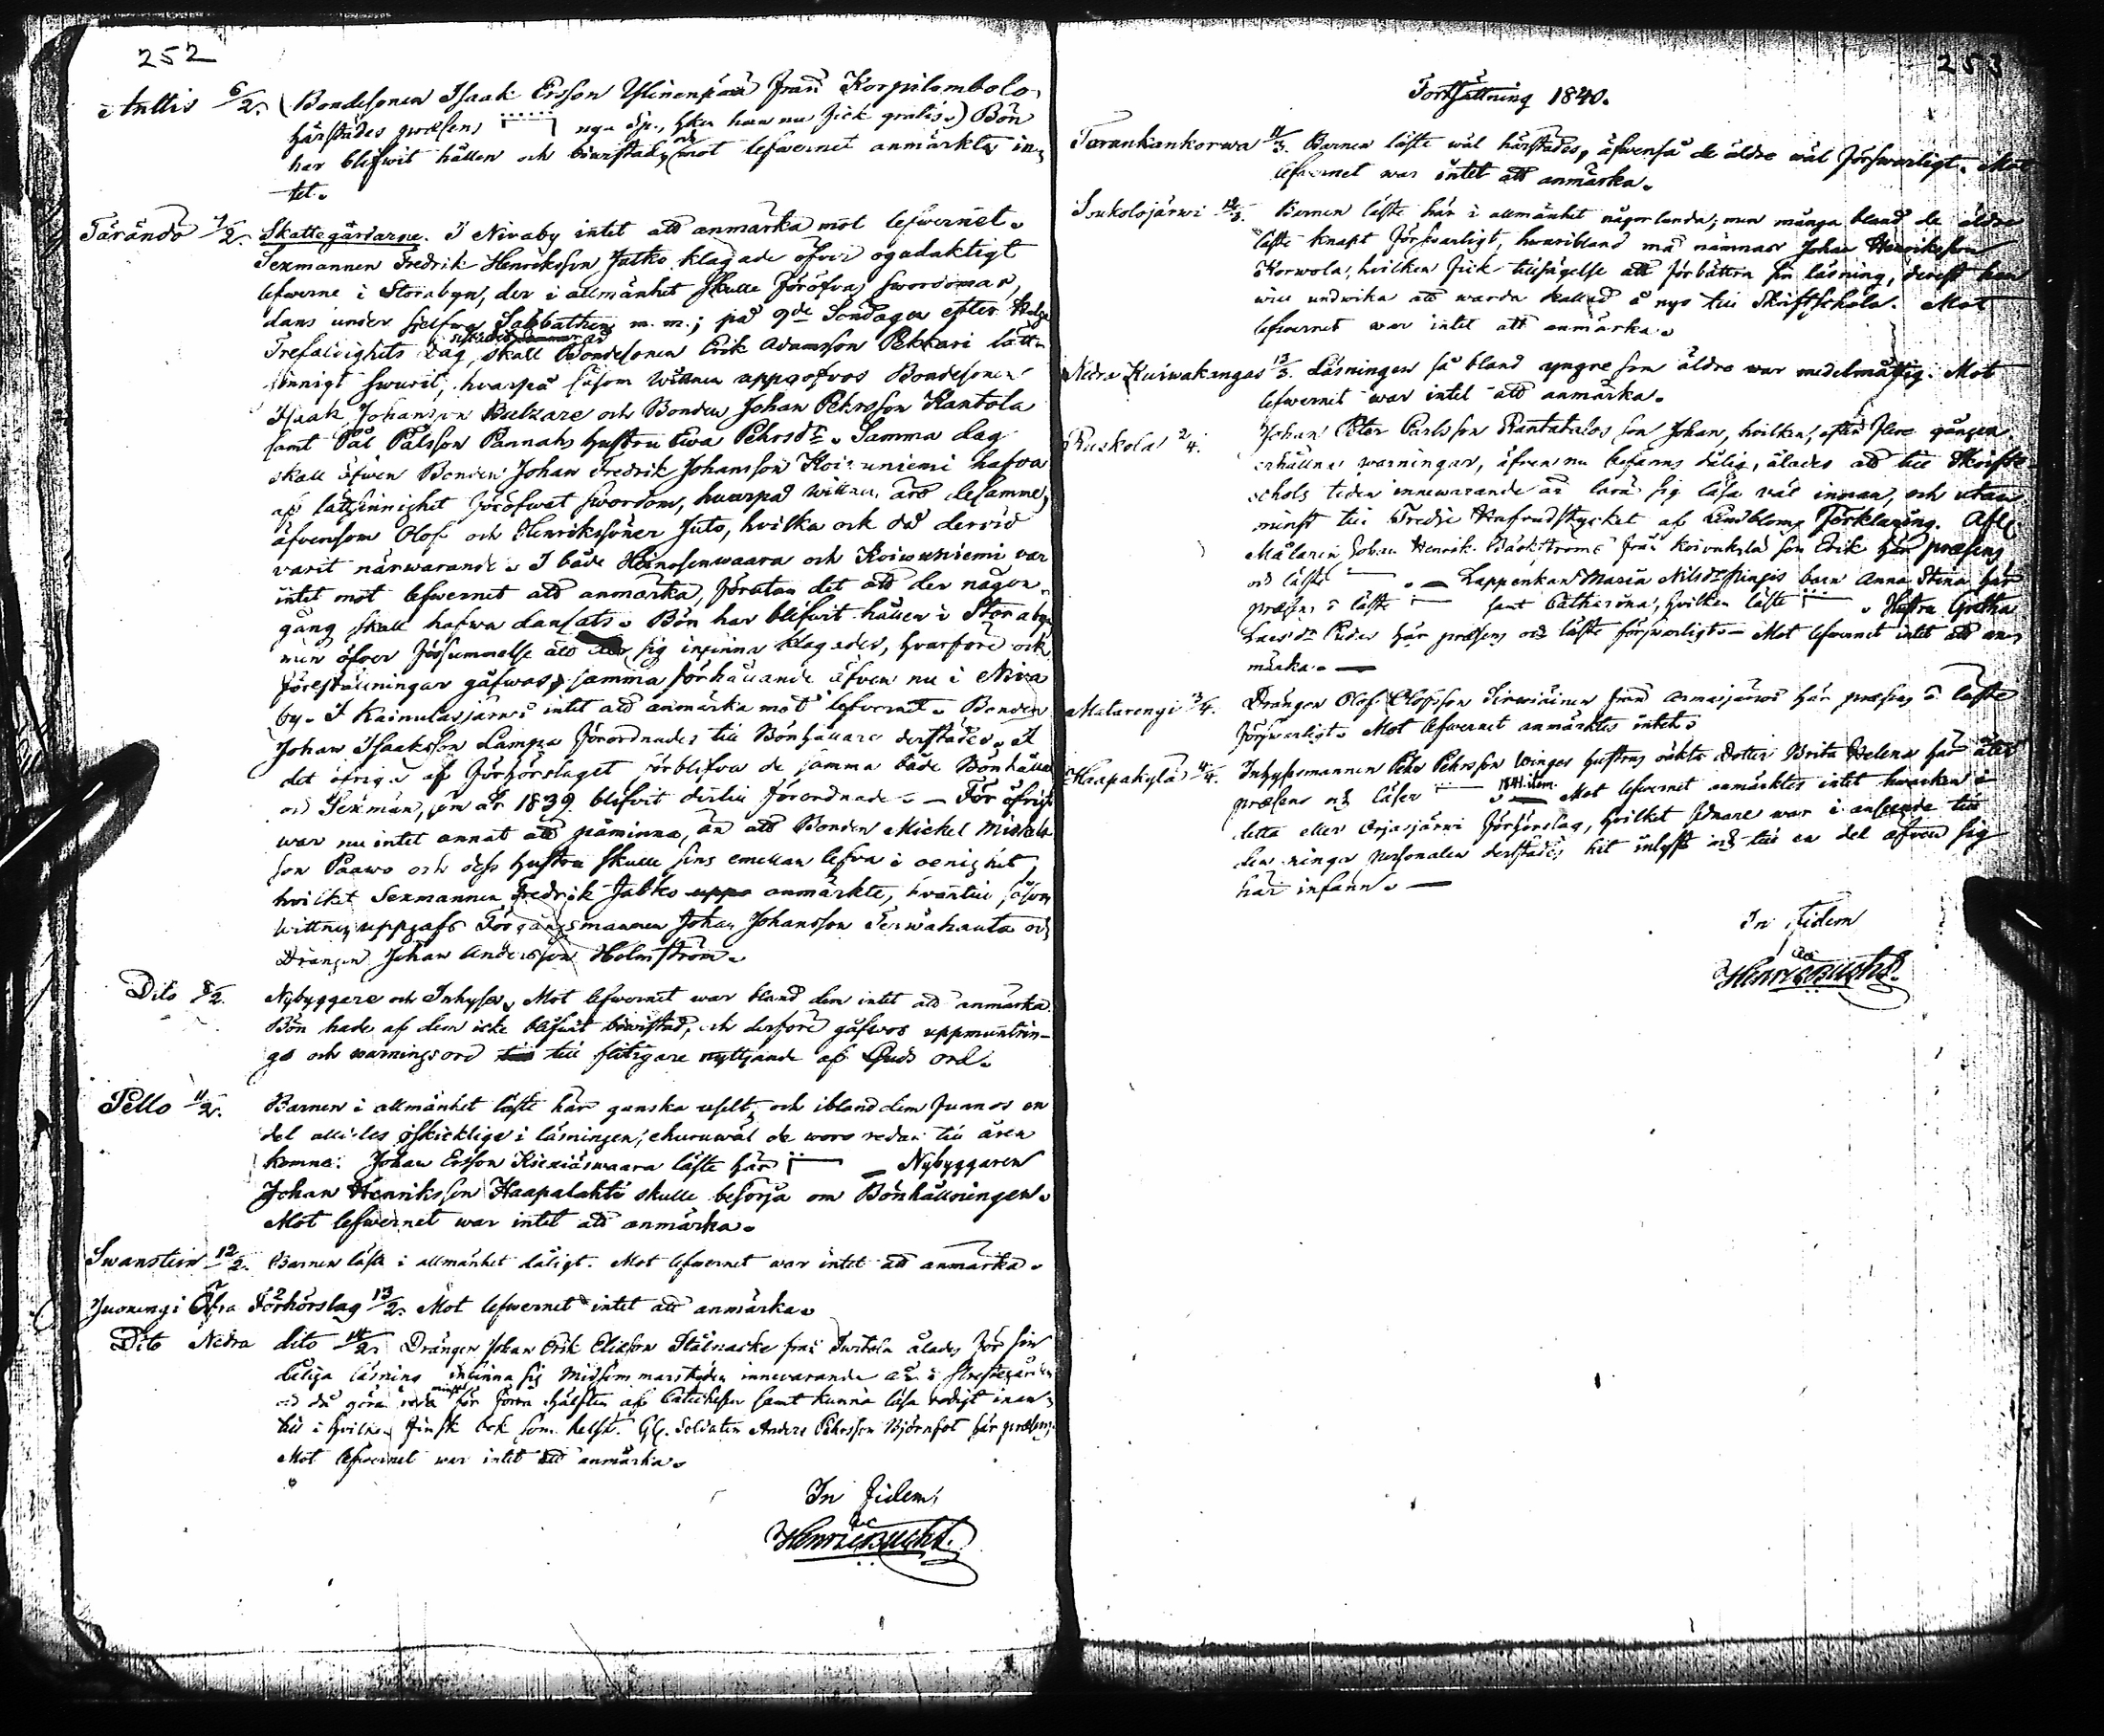 252
Anttis 6/2. (Bondesonen Isaak Ersson Ylinenpää från Korpilombolo,
härstädes præsens nya Ex., hka han nu fick gratis.) Bön
har blifwit hållen och biwistad, och mot lefwernet anmärktes in-
tet.
Tärändö 7/2. Skattegårdarne. I Nivaby intet att anmärka mot lefwernet.
Sexmannen Fredrik Henriksson Jatko klagade öfver ogudaktigt
lefwerne i Storabyn, der i allmänhet skulle föröfvas swordomar,
dans under sjelfwa Sabbathen m. m.; på 9de Söndagen efter Helga
Trefaldighets dag, skall Bondesonen Erik Adamsson Pekkari lätt-
sinnigt swurit, hvarpå såsom wittnen uppgofvos Bondesonen
Isaak Johansson och Bonden Johan Pehrsson Kantola
samt Pål Pålsson Pannahs hustru Ewa Pehrsdr. Samma dag
skall äfwen Bonden Johan Fredrik Johansson Koivuniemi hafva
af lättsinnighet föröfwat swordom, hwarpå wittnen äro desamme,
äfvensom Olof och Henrikssöner Juto, hvilka ock då dervid
varit närwarande. I både Heinosenwaara och Koivuniemi var
intet mot lefwernet att anmärka, förutan det att der någon
gång skall hafwa dansats. Bön har blifvit hållen i Storaby
men öfver försummelse att sig infinna klagades, hvarföre ock
föreställningar gåfwas, samma förhållande äfven nu i Niva
by. I Kainulasjärvi intet att anmärka mot lefvernet. Bonden
Johan Isaksson Lampa förordnades till Bönhållare derstädes. I
det öfriga af Förhörslaget förblifva de samma både Bönhållare
och Sexmän, som år 1839 blifvit dertill förordnade. — För öfrigt
war nu intet annat att påminna, än att Bonden Mickel Mickels-
son Paawo och dess hustru skulle sins emellan lefva i oenighet,
hvilket Sexmannen Fredrik Jatko uppg anmärkte, hvartill såsom
wittnen uppgafs Förgångsmannen Johan Johansson Terwahauta och
Drängen Johan Andersson Holmström.
Dito 8/2. Nybyggare och Inhyses. Mot lefwernet war bland dem intet att anmärka.
Bön hade af dem icke blifvit biwistad, och derföre gåfvos uppmuntrin-
ga och warningsord till till flitigare nyttjande af Guds ord.
Pello 11/2. Barnen i allmänhet läste här ganska uselt, och ibland dem funnos en
del alldeles oskicklige i läsningen, ehuruwäl de woro redan till åren
komne. Johan Ersson Kieriswaara läste här — Nybyggaren
Johan Henriksson Haapalahti skulle besörja om Bönhållningen.
Mot lefwernet war intet att anmärka.
Swanstein 12/2. Barnen läste i allmänhet dåligt. Mot lefwernet war intet att anmärka.
Juoxengi Öfra Förhörslag 13/2. Mot lefwernet intet att anmärka.
Dito Nedra dito 14/2. Drängen Johan Erik Eliasson Stålnacke från Turtola ålades för sin
dåliga läsning infinna sig Midsommarstiden innevarande år i Prestegården
och då göra reda minst för förra hälften af Catechesen samt kunna läsa redigt inan-
till i hvilken finsk bok som helst. Gl. Soldaten Anders Pehrsson Björnfot här præsens.
Mot lefwernet war intet att anmärka.
In fidem
Henric Bucht.
253
Fortsättning 1840.
Tarankankorwa 11/3. Barnen läste wäl härstädes, äfwenså de äldre wäl försvarligt. Mot
lefwernet war intet att anmärka.
Soukolojärwi 12/3. Barnen läste här i allmänhet någorlunda; men många bland de äldre
läste knapt försvarligt, hwaribland må nämnas Johan Henriksson
Korwola, hvilken fick tillsägelse att förbättra sin läsning, derest han
will undwika att warda kallad å nyo till Skriftschola. Mot
lefwernet war intet att anmärka.
Nedra Kuiwakangas 13/3. Läsningen så bland yngre som äldre war medelmåttig. Mot
lefwernet war intet att anmärka.
Ruskola 2/4. Johan Peter Carlsson Rantatalos son Johan, hvilken, efter flere gången
erhållna warningar, äfven nu befanns dålig, ålades att till Skrift-
schols tiden innewarande år lära sig läsa väl innan, och utan
minst till Tredje Hufvudstycket af Lindbloms Förklaring. Afl.
Målaren Johan Henrik Bäckströms från Koivukylä son Erik här præsens
och läste — Lappenkan Maria Nilsdr barn Anna Stina här
præsens o läste samt Catharina, hvilken läste . Hustru Gretha
Larsdr Pudas här præsens och läste försvarligt. — Mot lefwernet intet att an-
märka. —
Matarengi 3/4. Drängen Olof Olofsson från Armasjärwi här præsens o läste
försvarligt. Mot lefwernet anmärktes intet.
Haapakylä 4/4. Inhysesmannen Pehr Pehrsson Winges hustrus oäkta dotter Brita Helena här åter
præsens och läser 1841. item. — Mot lefwernet anmärktes intet hwarken i
detta eller Orjasjärvi Förhörslag, hvilket sednare war i anseende till
den ringa personalen derstädes hit inlyst och till en del äfven sig
här infann. —
In fidem
Henric Bucht.